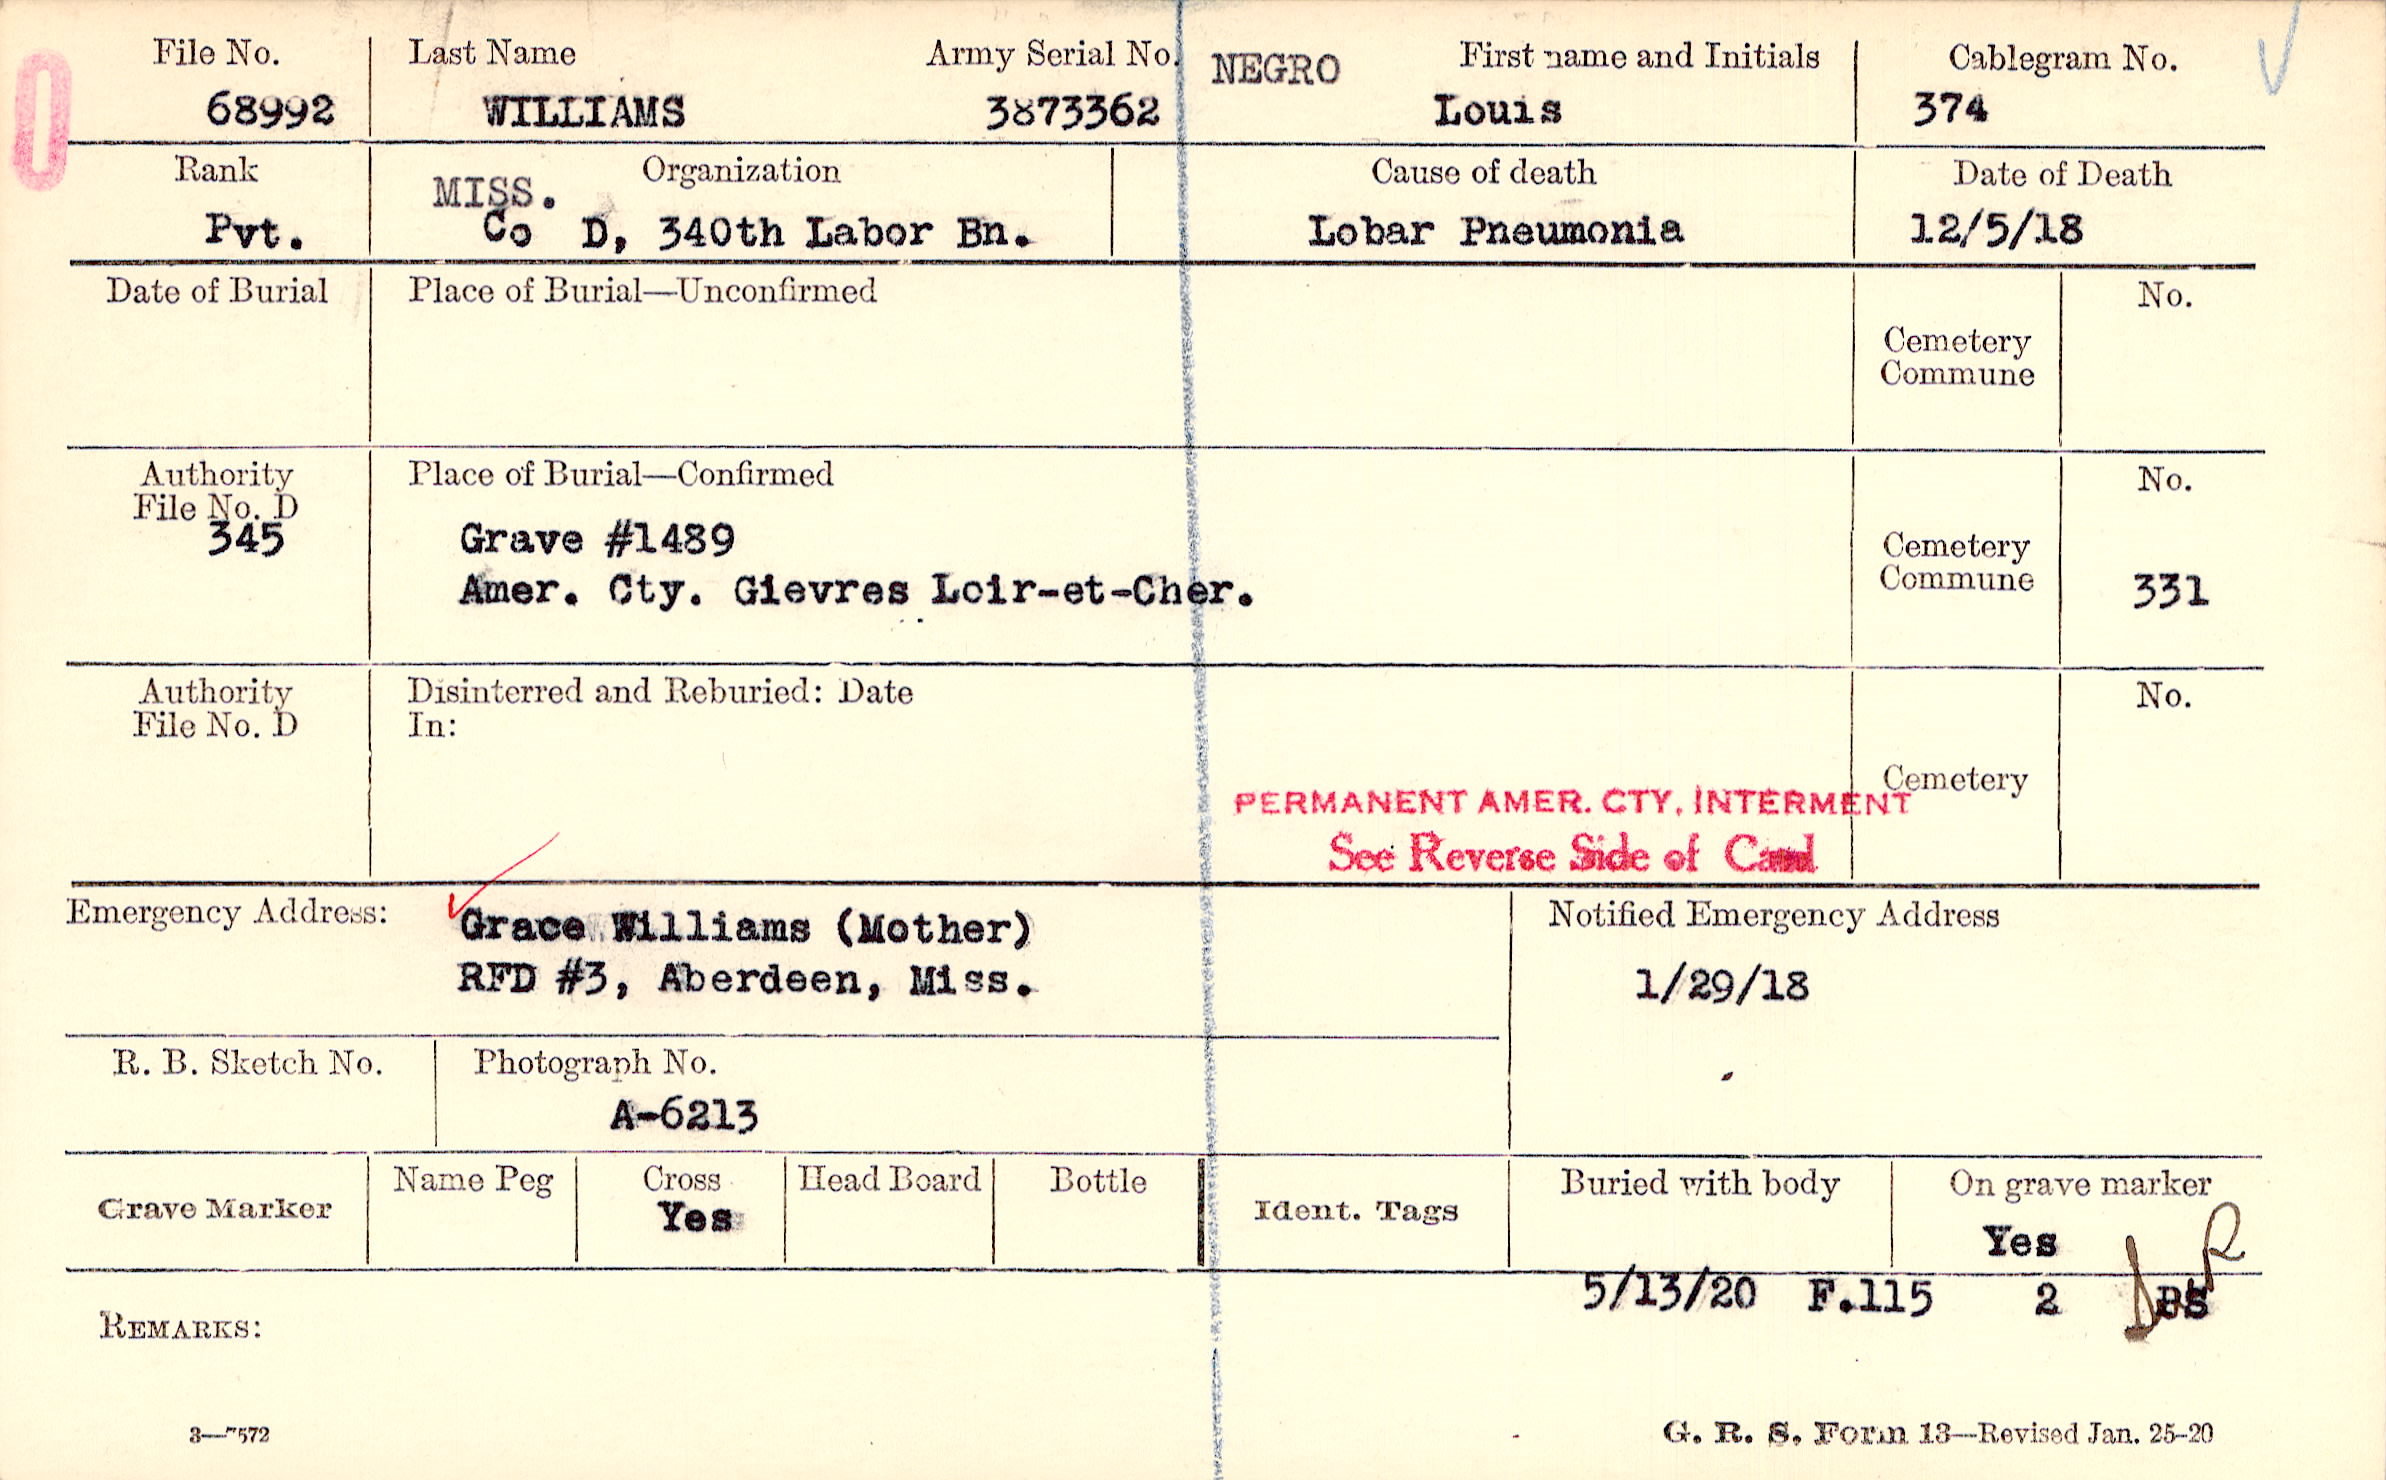 File No. Last Name Army Serial No. NEGRO First name and Initials Cablegram No.
68992 WILLIAMS 3873362 Louis 374
Rank MISS. Organization Cause of death Date of Death
Pvt. Co D, 340th Labor Bn. Lobar Pneumonia 12/5/18
Date of Burial Place of Burial—Unconfirmed No.
Cemetery
Commune
Authority Place of Burial—Confirmed No.
File No. D
345 Grave #1489 Cemetery
Amer. Cty. Gievres Loir-et-Cher. Commune 331
Authority Disinterred and Reburied: Date No.
File No. D In:
Cemetery
PERMANENT AMER. CTY. INTERMENT
See Reverse Side of Card
Emergency Address: Grace Williams (Mother) Notified Emergency Address
RFD #3, Aberdeen, Miss. 1/29/18
R. B. Sketch No. Photograph No.
A-6213
Grave Marker Name Peg Cross Head Board Bottle Ident. Tags Buried with body On grave marker
Yes Yes
5/13/20 F.115 2
REMARKS:
3—7572 G. R. S. Form 13—Revised Jan. 25-20